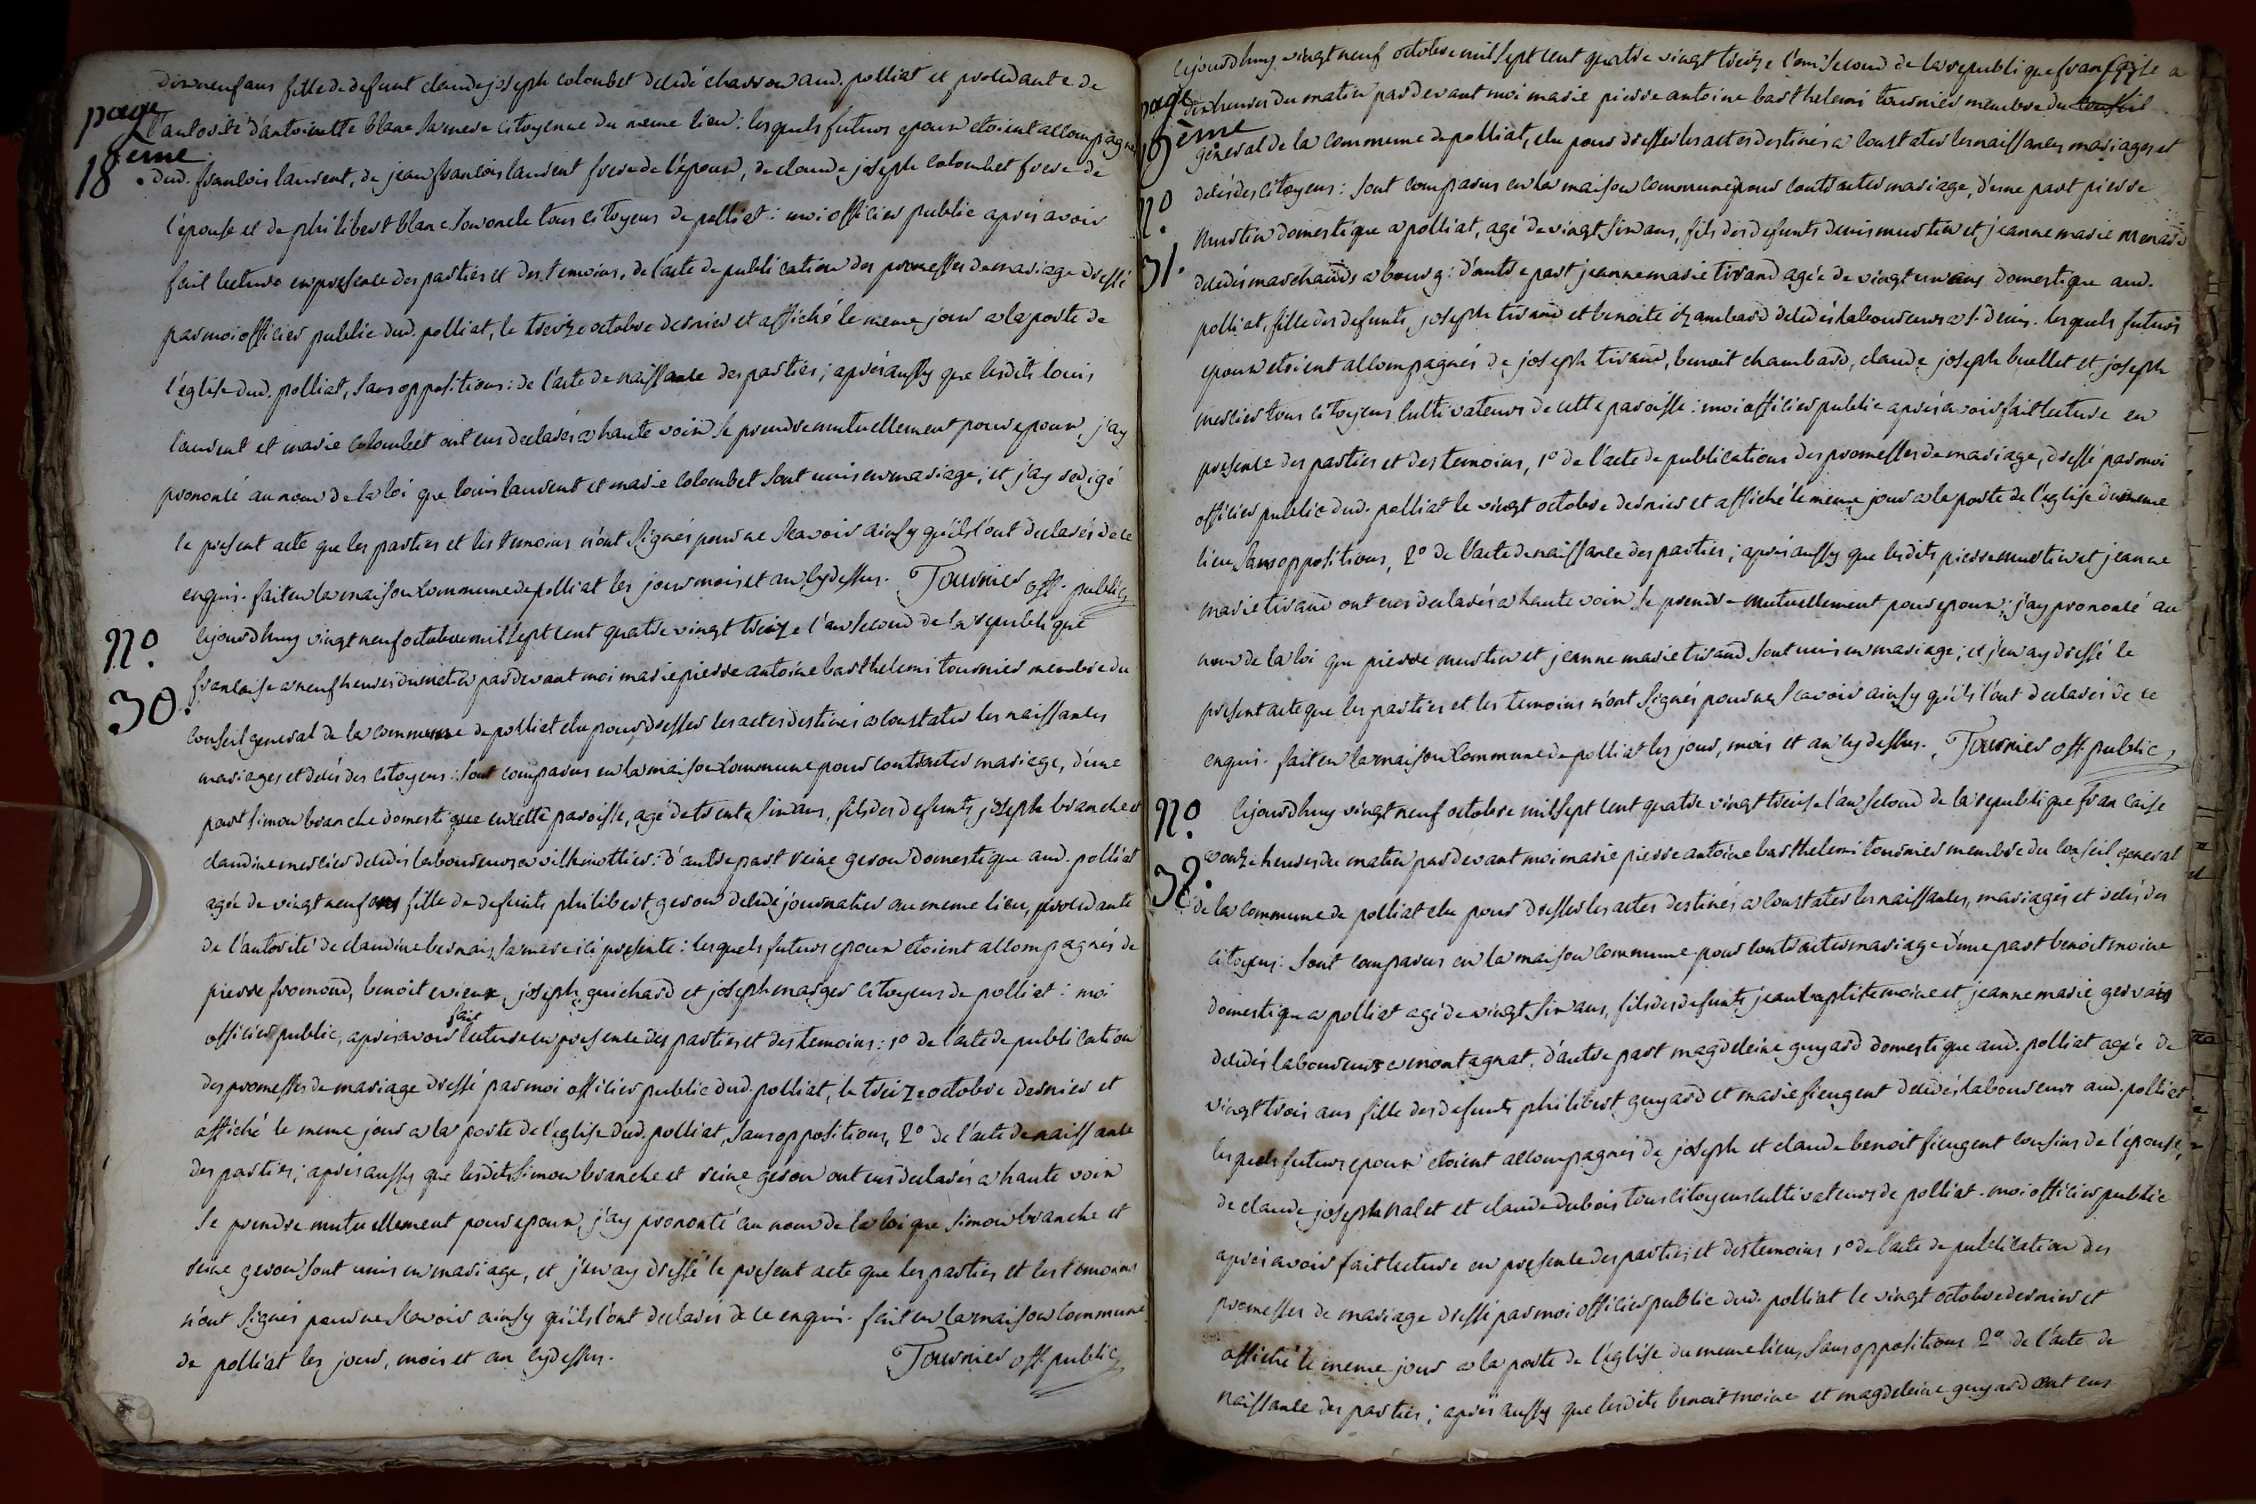 dix neuf ans fille de defunt claude joseph colombet decedé charron aud. polliat et procedante de
page
l'autorité d'antoinette blanc sa mere citoyenne du meme lieu. lesquels futurs epoux etoient accompagnés
18eme.
dud. francois laurent, de jean francois laurent frere de l'époux, de claude joseph colombet frere de
l'épouse et de philibert blanc son oncle tous citoyens de polliat : moi officier public aprés avoir
fait lecture en presence des parties et des temoins, de l'acte de publication des promesses de mariage dressé
par moi officier public dud. polliat, le treize octobre dernier et affiché le meme jour a la porte de
l'église dud. polliat, sans oppositions : de l'acte de naissance des parties ; aprés aussy que lesdits louis
laurent et marie colombet ont eus declarés a haute voix se prendre mutuellement pour epoux, j'ay
prononcé au nom de la loi que louis laurent et marie colombet sont unis en mariage ; et j'ay redigé
le present acte que les parties et les temoins n'ont signés pour ne scavoir ainsy qu'ils l'ont declarés de ce
enquis. fait en la maison commune de polliat les jour mois et an cydessus. Tournier off. public
n°. 30.
cejourdhuy vingt neuf octobre mil sept cent quatre vingt treize l'an second de la republique
francaise a neuf heures du matin par devant moi marie pierre antoine barthelemi tournier membre du
conseil general de la commune de polliat elu pour dresser les actes destinés a constater les naissances
mariages et décés des citoyens : sont comparus en la maison commune pour contracter mariage, d'une
part simon branche domestique en cette paroisse, agé de trente six ans, fils des defunts joseph branche et
claudine mercier decedés laboureurs a vilhemottier : d'autre part reine geron domestique aud. polliat
agée de vingt neuf ans fille de defunt philibert geron decedé journalier au meme lieu, procedante
de l'autorité de claudine bernais, sa mere ici presente : lesquels futurs epoux etoient accompagnés de
pierre fromond, benoit evieux, joseph guichard et joseph marger citoyens de polliat : moi
officier public, aprés avoir fait lecture en presence des parties et des temoins : 1° de l'acte de publication
des promesses de mariage dressé par moi officier public dud. polliat, le treize octobre dernier et
affiché le meme jour a la porte de l'eglise dud. polliat, sans oppositions, 2° de l'acte de naissance
des parties ; aprés aussy que lesdits simon branche et reine geron ont eus declarés a haute voix
se prendre mutuellement pour epoux, j'ay prononcé au nom de la loi que simon branche et
reine geron sont unis en mariage, et j'en ay dressé le present acte que les parties et les temoins
n'ont signés pour ne scavoir ainsy qu'ils l'ont declarés de ce enquis. fait en la maison commune
de polliat les jour, mois et an cydessus. Tournier off. public
cejourdhuy vingt neuf octobre mil sept cent quatre vingt treize l'an second de la republique francaise a
page
dix heures du matin par devant moi marie pierre antoine barthelemi tournier membre du conseil
19eme
general de la commune de polliat, elu pour dresser les actes destinés a constater les naissances mariages et
n°. 31.
décés des citoyens : sont comparus en la maison commune pour contracter mariage, d'une part pierre
murtin domestique a polliat, agé de vingt six ans, fils des defunts denis murtin et jeanne marie menard
decedés marchands a bourg : d'autre part jeanne marie tirand agée de vingt un ans domestique aud.
polliat, fille des defunts joseph tirand et benoite chambard decedés laboureurs a st. denis. lesquels futurs
epoux etoient accompagnés de joseph tirand, benoit chambard, claude joseph buellet et joseph
mercier tous citoyens cultivateurs de cette paroisse : moi officier public aprés avoir fait lecture en
presence des parties et des temoins, 1° de l'acte de publications des promesses de mariage, dressé par moi
officier public dud. polliat le vingt octobre dernier et affiché le meme jour a la porte de l'eglise du meme
lieu sans oppositions, 2° de l'acte de naissance des parties ; aprés aussy que lesdits pierre murtin et jeanne
marie tirand ont eus declarés a haute voix se prendre mutuellement pour epoux ; j'ay prononcé au
nom de la loi que pierre murtin et jeanne marie tirand sont unis en mariage ; et j'en ay dressé le
present acte que les parties et les temoins n'ont signés pour ne scavoir ainsy qu'ils l'ont declarés de ce
enquis. fait en la maison commune de polliat les jour, mois et an cy dessus. Tournier off. public
n°. 32.
cejourdhuy vingt neuf octobre mil sept cent quatre vingt treise l'an second de la republique francaise
a onze heures du matin par devant moi marie pierre antoine barthelemi tournier membre du conseil general
de la commune de polliat elu pour dresser les actes destinés a constater les naissances, mariages et décés des
citoyens : sont comparus en la maison commune pour contracter mariage d'une part benoit moine
domestique a polliat agé de vingt six ans, fils des defunts jean baptiste moine et jeanne marie gervais
decedés laboureurs a montagnat. d'autre part magdeleine guyard domestique aud. polliat agée de
vingt trois ans fille des defunts philibert guyard et marie fieugent decedés laboureurs aud. polliat
lesquels futurs epoux etoient accompagnés de joseph et claude benoit fieugent cousins de l'épouse,
de claude joseph nalet et claude dubois tous citoyens cultivateurs de polliat. moi officier public
aprés avoir fait lecture en presence des parties et des temoins 1° de l'acte de publication des
promesses de mariage dressé par moi officier public dud. polliat le vingt octobre dernier et
affiché le meme jour a la porte de l'église du meme lieu, sans oppositions 2° de l'acte de
naissance des parties ; aprés aussy que lesdits benoit moine et magdeleine guyard ont eus